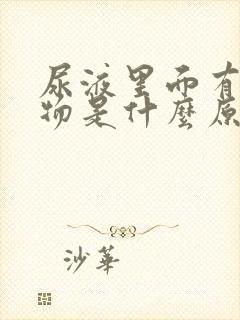 尿液里面有
物是什麼原
沙華